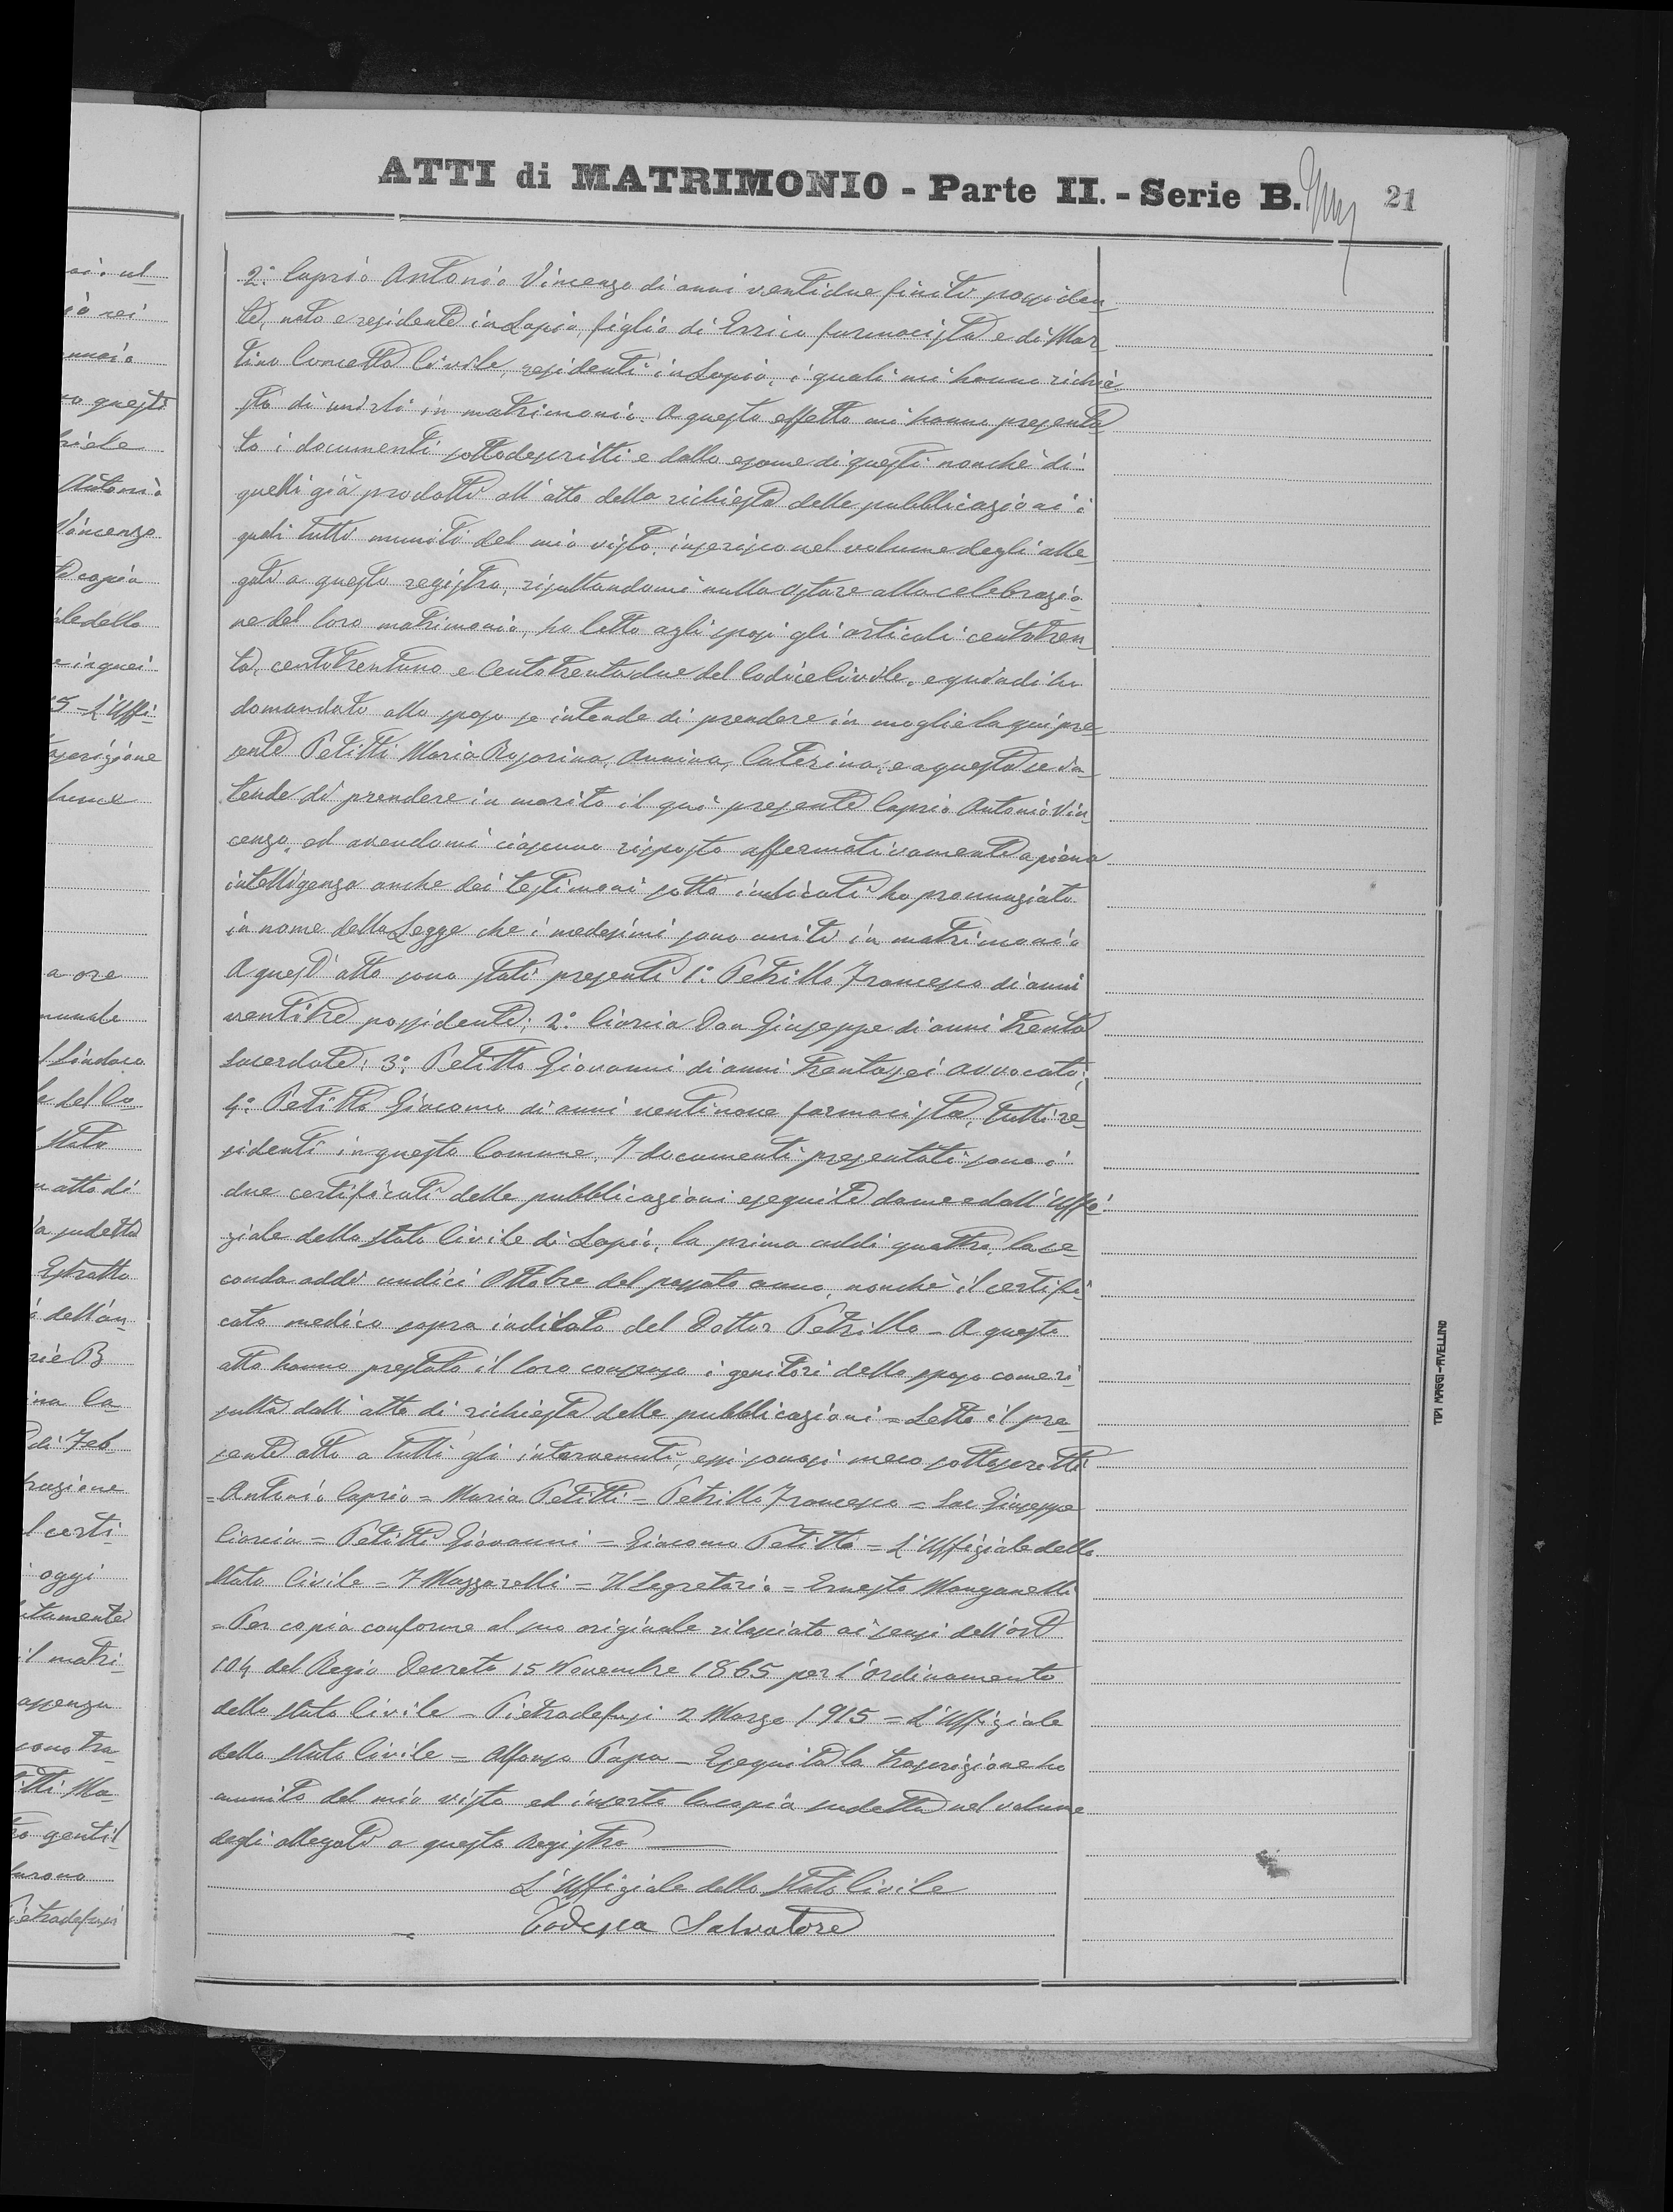 ATTI di MATRIMONIO - Parte II. - Serie B.
21
2.° Caprio Antonio Vincenzo di anni ventidue finiti possiden-
te, nato e residente in Lapio, figlio di Errico farmacista e di Mar-
tino Concetta Civile, residenti in Lapio, i quali mi hanno richie-
sto di unirli in matrimonio. A questo effetto mi hanno presenta-
to i documenti sottodescritti e dallo esame di questi nonchè di
quelli già prodotti all'atto della richiesta delle pubblicazioni i
quali tutti muniti del mio visto, inserisco nel volume degli alle-
gati a questo registro, risultandomi nulla ostare alla celebrazio-
ne del loro matrimonio, ho letto agli sposi gli articoli centotren-
ta, centotrentuno e centotrentadue del Codice Civile, e quindi ho
domandato allo sposo se intende di prendere in moglie la qui pre-
sente Petitti Maria Rosarina, Annina, Caterina, e a questa se in-
tende di prendere in marito il quì presente Caprio Antonio Vin-
cenzo, ed avendomi ciascuno risposto affermativamente a piena
intelligenza anche dei testimoni sotto indicati ho pronunziato
in nome della Legge che i medesimi sono uniti in matrimonio
A quest'atto sono stati presenti 1.° Petrillo Francesco di anni
ventitre possidente; 2.° Ciarcia Don Giuseppe di anni trenta
Sacerdote; 3.° Petitto Giovanni di anni trentasei avvocato;
4.° Petitto Giacomo di anni ventinove farmacista, tutti re-
sidenti in questo Comune. I documenti presentati sono i
due certificati delle pubblicazioni eseguite da me e dall'Uffi-
ziale dello Stato Civile di Lapio, la prima addì quattro, la se-
conda addì undici Ottobre del passato anno, nonchè il certifi-
cato medico sopra indicato del Dottor Petrillo - A questo
atto hanno prestato il loro consenso i genitori dello sposo come ri-
sulta dall'atto di richiesta delle pubblicazioni = Letto il pre-
sente atto a tutti gli intervenuti, essi sonosi meco sottoscritti
= Antonio Caprio = Maria Petitti = Petrillo Francesco = Sac Giuseppe
Ciarcia = Petitti Giovanni = Giacomo Petitto = L'Uffiziale dello
Stato Civile = F Mazzarelli = Il Segretario = Ernesto Manganelli
= Per copia conforme al suo originale rilasciato ai sensi dell'art
104 del Regio Decreto 15 Novembre 1865 per l'ordinamento
dello Stato Civile - Pietradefusi 2 Marzo 1915 = L'Uffiziale
dello Stato Civile = Alfonso Papa - Eseguita la trascrizione ho
munito del mio visto ed inserta la copia sudetta nel volume
degli allegati a questo registro
L'Uffiziale dello Stato Civile
Todesca Salvatore
TIPI MAGGI-AVELLINO
ai: ul
iò rei
nnaio
va questi
briele
Antonio
Vincenzo
te copia
ile dello
e in quei
5 = L'Uffi
scrizione
lume
a ore
munale
l Sindaco
e del Co
Stato
n atto di
ia sudetta
Estratto
ò dell'an-
rie B
ina Ca-
di Feb
brazione
l certi-
oggi
itamente
il matri-
assenza
sono tra
titti Ma-
ro gentil
furono
Pietradefusi